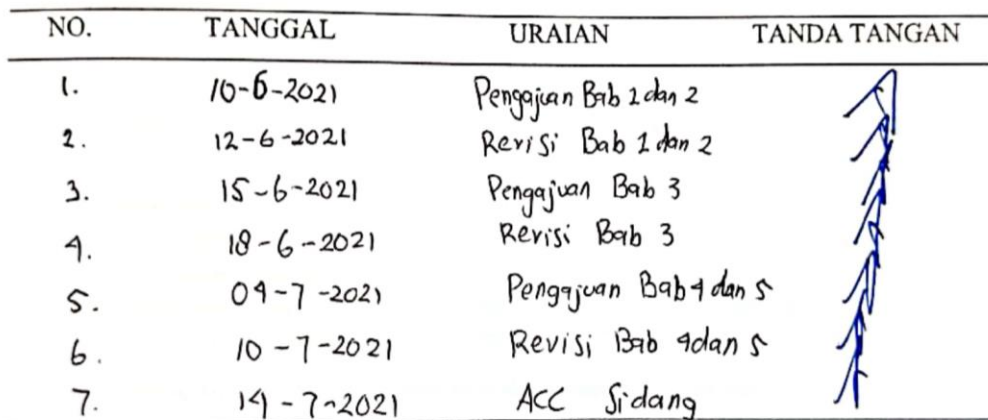 NO. TANGGAL URAIAN TANDA TANGAN
1. 10-6-2021 Pengajuan Bab 1 dan 2
2. 12-6-2021 Revisi Bab 1 dan 2
3. 15-6-2021 Pengajuan Bab 3
4. 18-6-2021 Revisi Bab 3
5. 04-7-2021 Pengajuan Bab 4 dan 5
6. 10-7-2021 Revisi Bab 4 dan 5
7. 14-7-2021 ACC Sidang